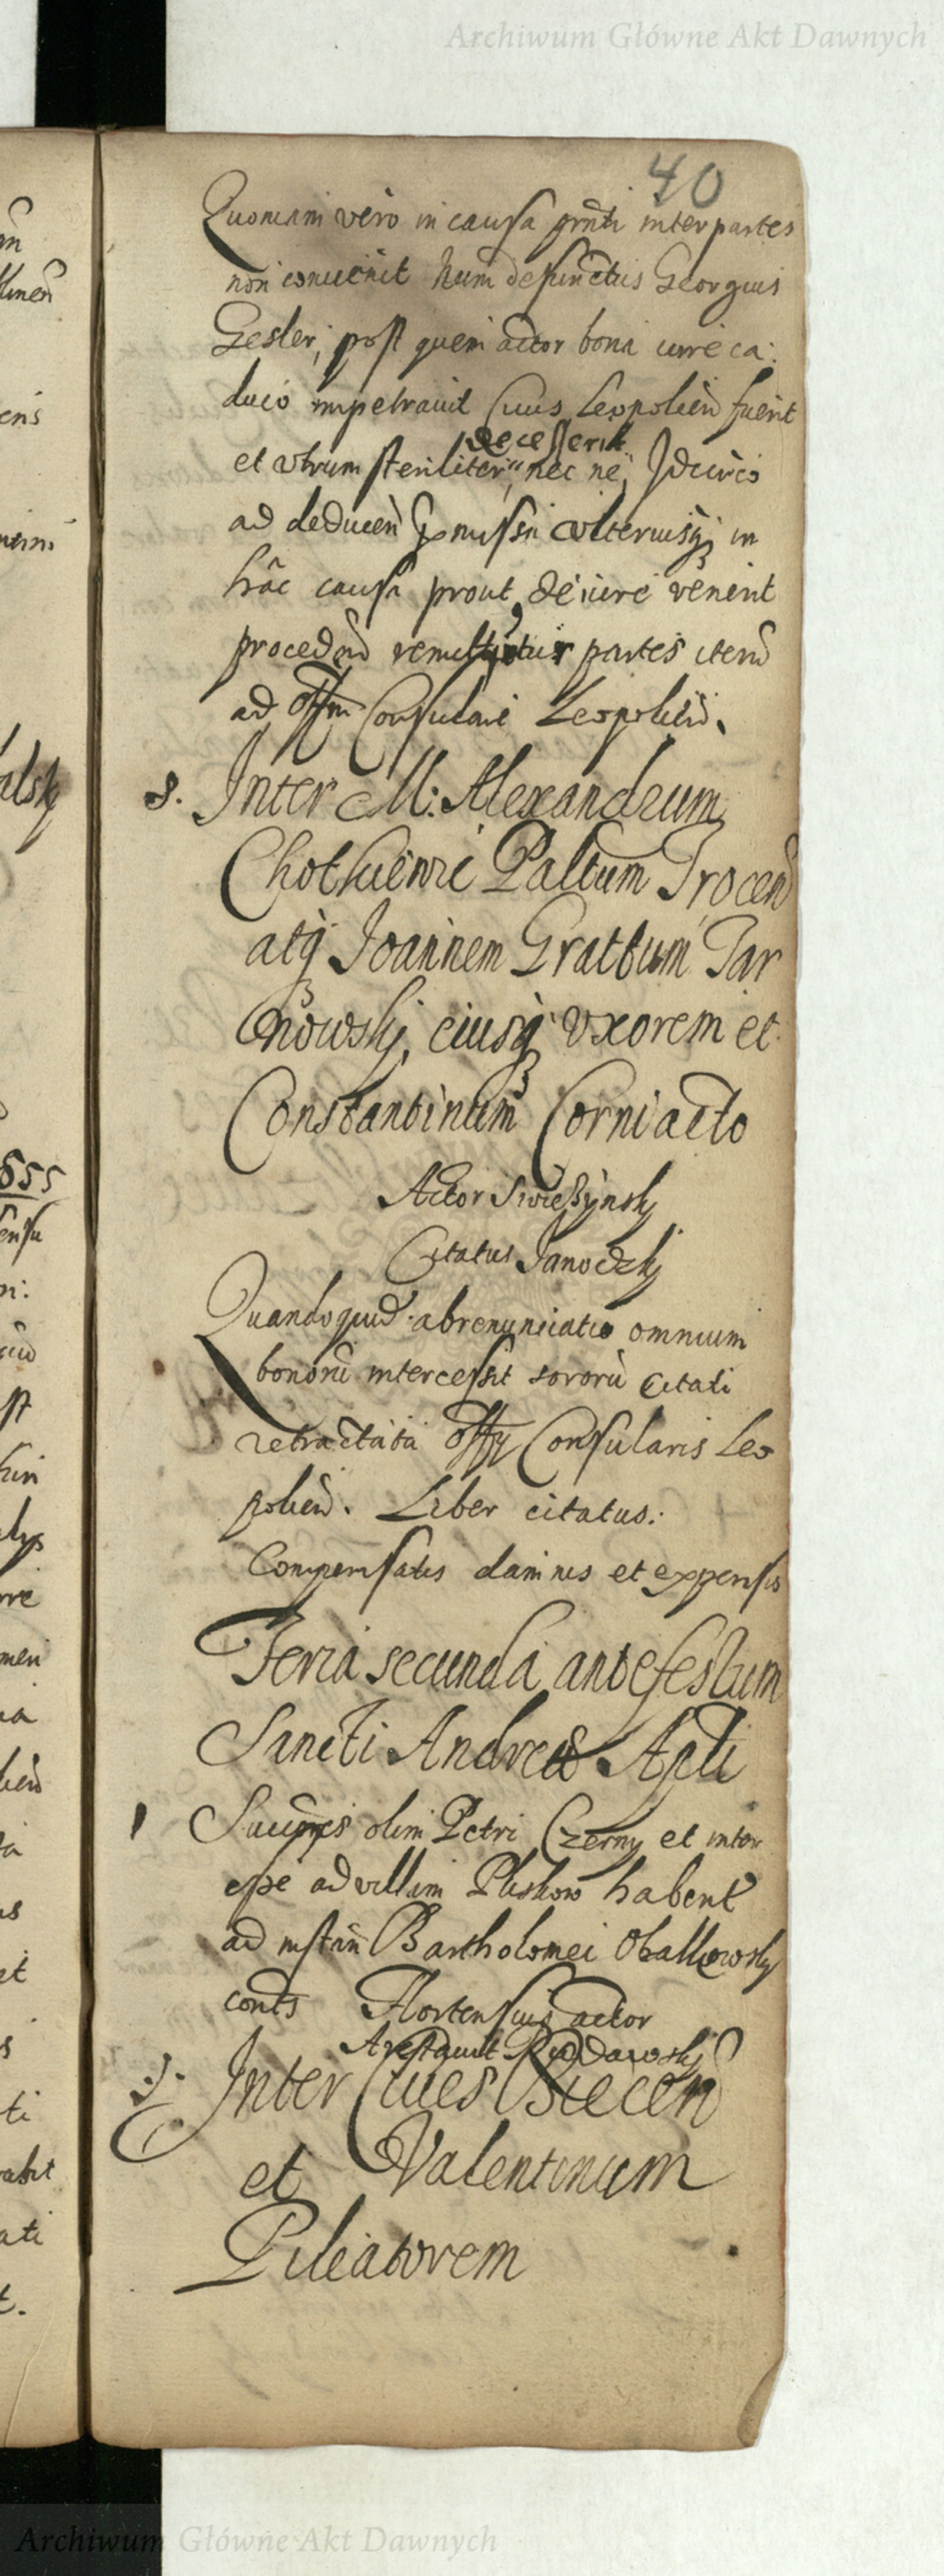 Archiwum Główne Akt Dawnych
40
Quoniam vero in causa prnti inter partes
non convenit Num defunctus Georgius
Gesler, post quem actor bona iure ca:
duco impetravit Civis Leopolien fuerit
decesserit
et vtrum steriliter, nec ne, Idcirco
ad deducen praemissa vltrerius in
hac causa prout de iure venerit
proceden remittuntur partes iteru
ad Offm Consulare Leopolien.
8. Inter M: Alexandrum
Chotkievici Paltum Trocen
atq Joannem Grattum Tar
nowskj, eiusq vxorem et
Constantinum Corniacto
Actor Swieszynskj
Citatus Janoczkj
Quandoquid abrenunciatio omnium
bonoru intercessit sororu Citati
retractata Offy Consularis Leo
polien. Liber citatus.
Compensatis damnis et expensis
Feria secunda ante festum
Sancti Andreae Apli
1 olim Petri Czerny et inter
ad villam Pliskow habent
ad instan Bartholomei
Hortensius actor
Arestavit Rudawskj
Inter Cives Biecen
et Valentinum
Pileatorem
Archiwum Główne Akt Dawnych